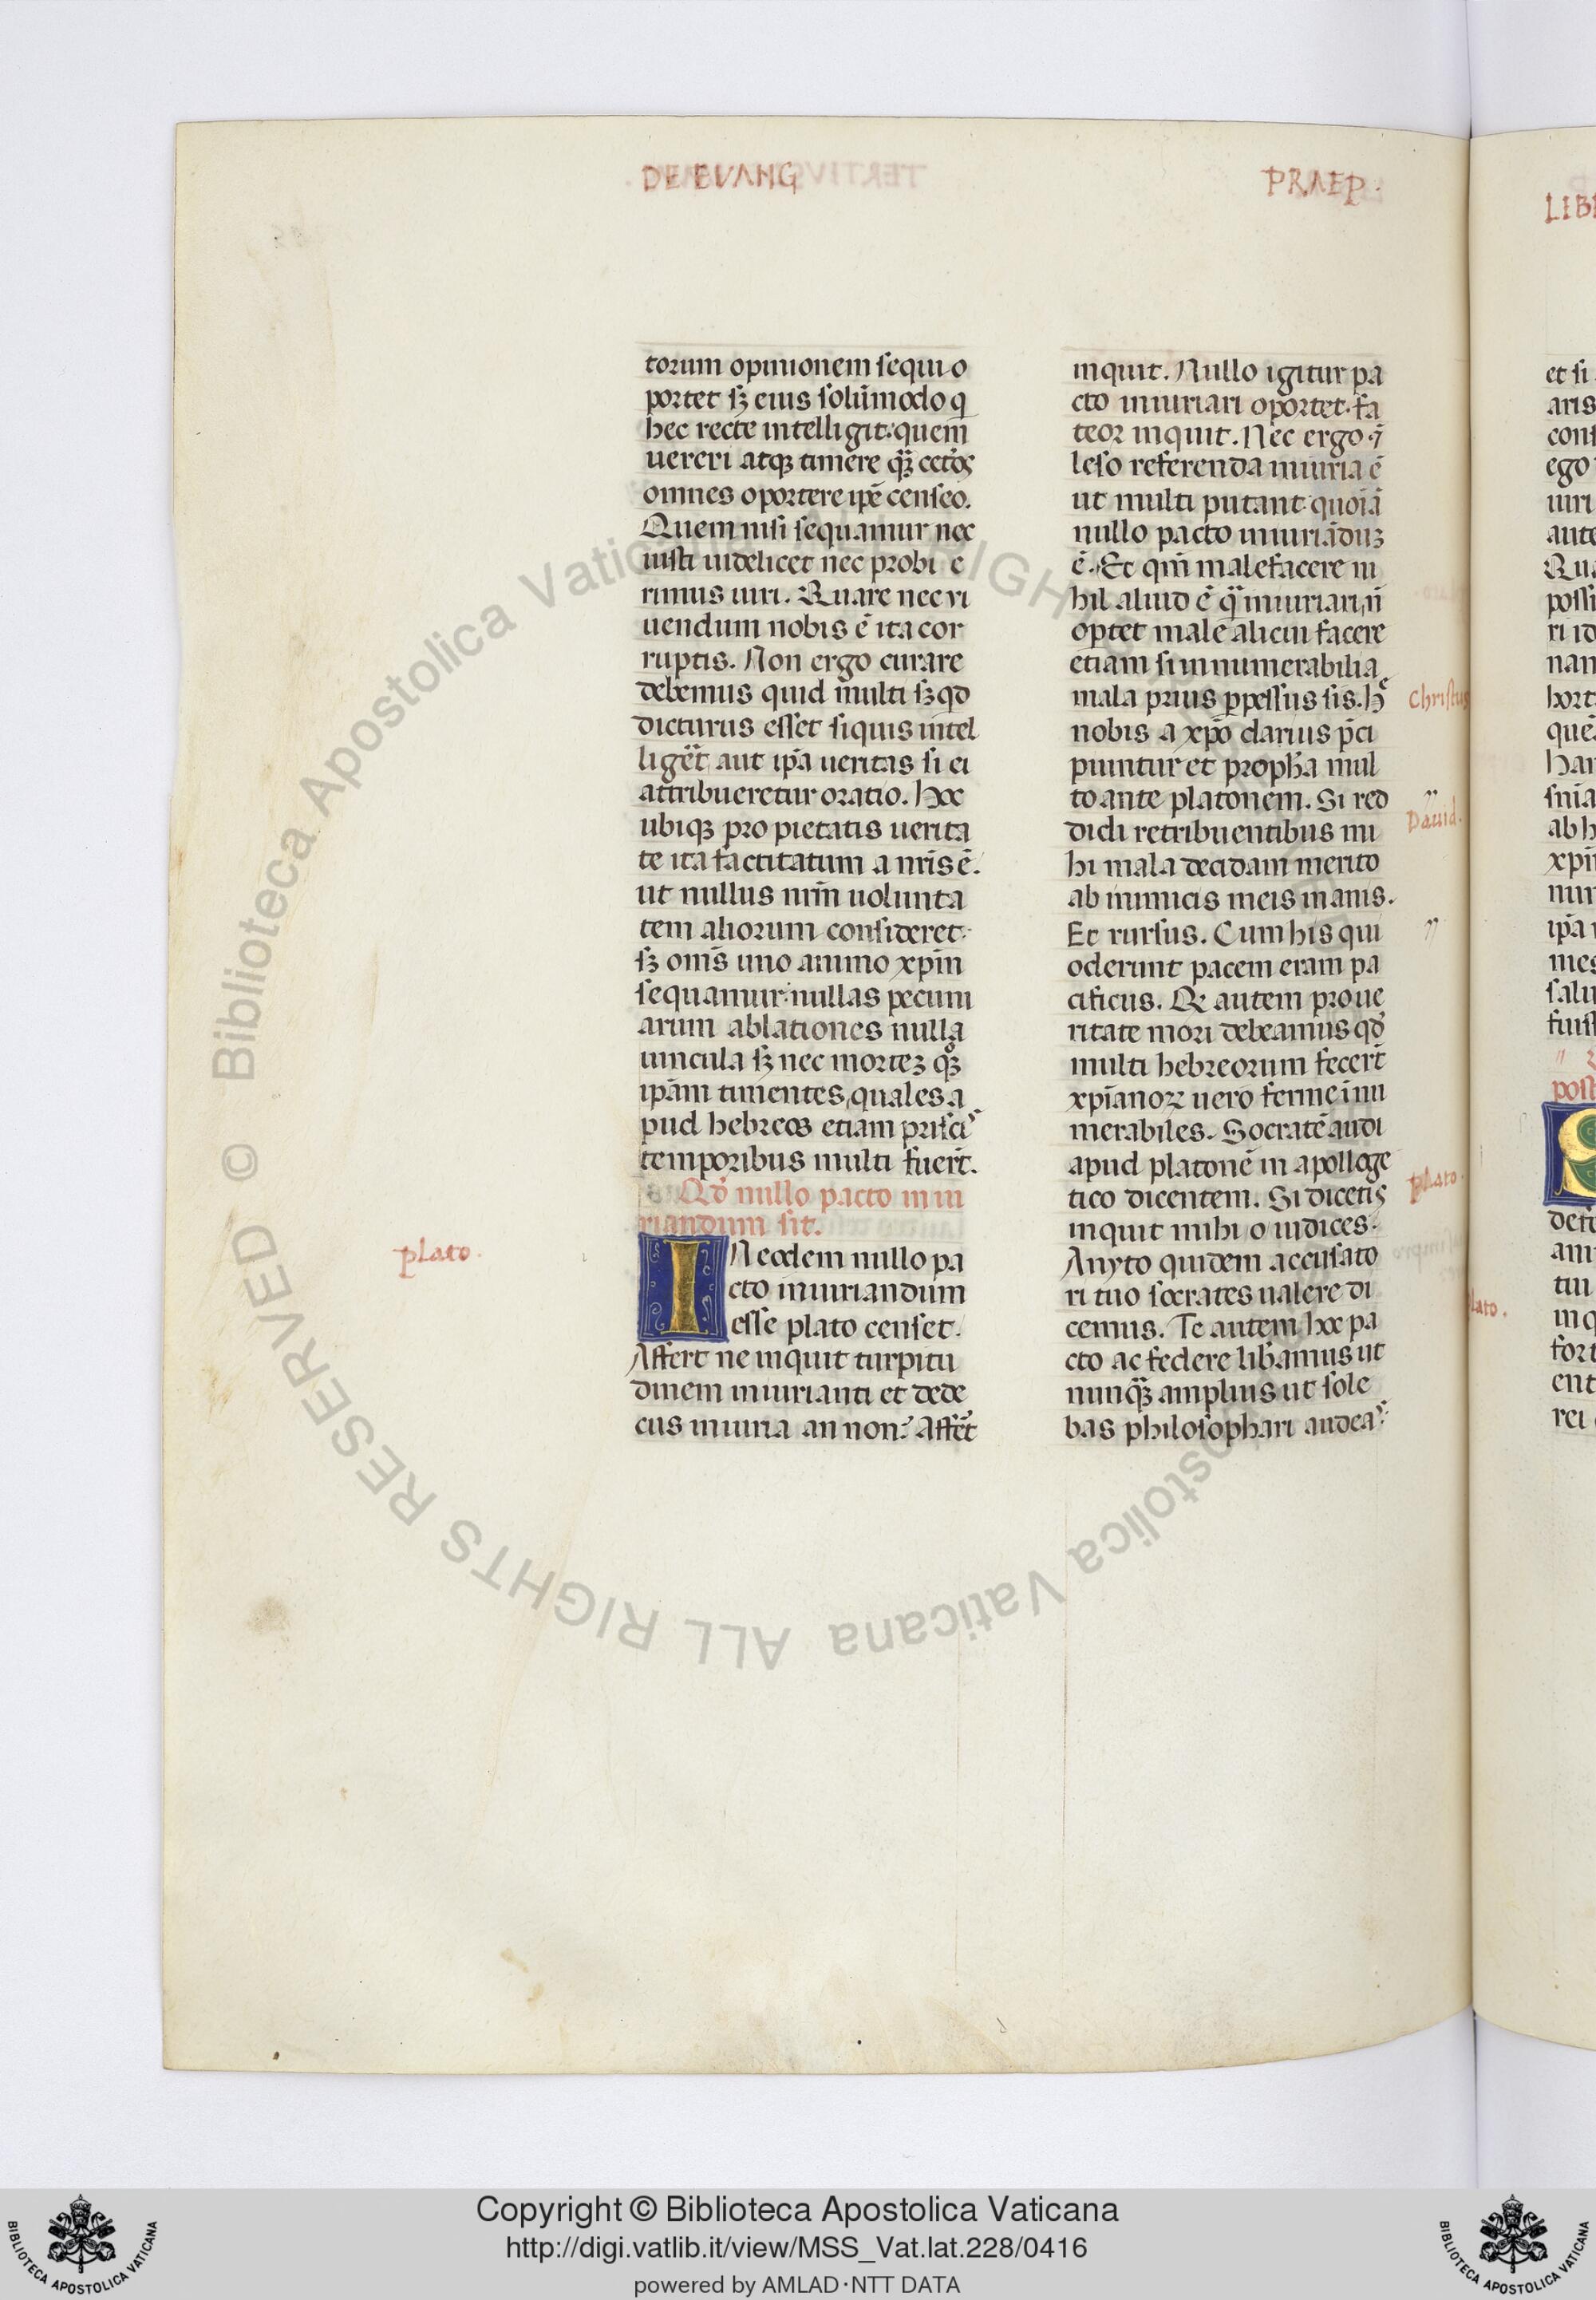 DE EVANG
PRAEP.
torum opinionem sequi o
portet sꝫ eius solūmodo q
hec recte intelligit: quem
uereri atqꝫ timere qꝫ̄ cetos̄
omnes oportere ip̄e censeo.
Quem nisi sequamur nec
iusti uidelicet nec probi e
rimus uiri. Quare nec vi
uendum nobis ē ita cor
ruptis. Non ergo curare
debemus quid multi sꝫ qd
dicturus esset siquis intel
liget̄ aut ip̄a ueritas si ei
attribueretur oratio. hoc
ubiqꝫ pro pietatis uerita
te ita factitatum a nr̄is ē.
ut nullus nrm̄ uolunta
tem aliorum consideret.
sꝫ om̄s uno animo xp̄m
sequamur: nullas pecuni
arum ablationes nulla
uincula sꝫ nec mortēꝫ qꝫ
ip̄am timentes, quales a
pud hebreos etiam priscis
temporibus multi fuert̄.
Qd̄ nullo pacto iniu
riandum sit.
plato.
IN eodem nullo pa
cto iniuriandum
esse plato censet.
Affert ne inquit turpitu
dinem iniurianti et dede
cus iniuria an non? Affert̄
inquit. Nullo igitur pa
cto iniuriari oportet. fa
teor inquit. Nec ergo ī
leso referenda iniuria ē
ut multi putant: quoīā
nullo pacto iniuriāduꝫ
ē. Et qm̄ malefacere ni
hil aliud ē qꝫ iniuriari, n̄
oportet male alicui facere
etiam si innumerabilia
mala prius ꝑpessus sis. hc̄
Christus
nobis a xp̄o clarius p̄ci
piuntur et proph̄a mul
to ante platonem. Si red
didi retribuentibus mi
Dauid.
hi mala decidam merito
ab inimicis meis inanis.
Et rursus. Cum his qui
oderunt pacem eram pa
cificus. Qꝫ autem pro ue
ritate mori debeamus qd̄
multi hebreorum fecert̄
xp̄ianoꝝ uero ferme īnu
merabiles. Socratē audi
apud platonē in apolloge
plato.
tico dicentem. Si dicetis
inquit mihi o iudices.
Anyto quidem accusato
ri tuo socrates ualere di
cemus. Te autem hoc pa
cto ac federe liberamus ut
nunqꝫ̄ amplius ut sole
bas philosophari audeas
LIB
et si
aris
cons
ego
uiri
aute
Qua
possi
ri id
nan
hort
que
har
snia
ab h
xpi
nun
ip̄a
mes
salu
fuiss
post
lato.
defe
ani
tui
inq
fort
ent
rei
© Biblioteca Apostolica Vaticana ALL RIGHTS RESERVED
Copyright © Biblioteca Apostolica Vaticana
http://digi.vatlib.it/view/MSS_Vat.lat.228/0416
powered by AMLAD·NTT DATA
BIBLIOTECA APOSTOLICA VATICANA
BIBLIOTECA APOSTOLICA VATICANA